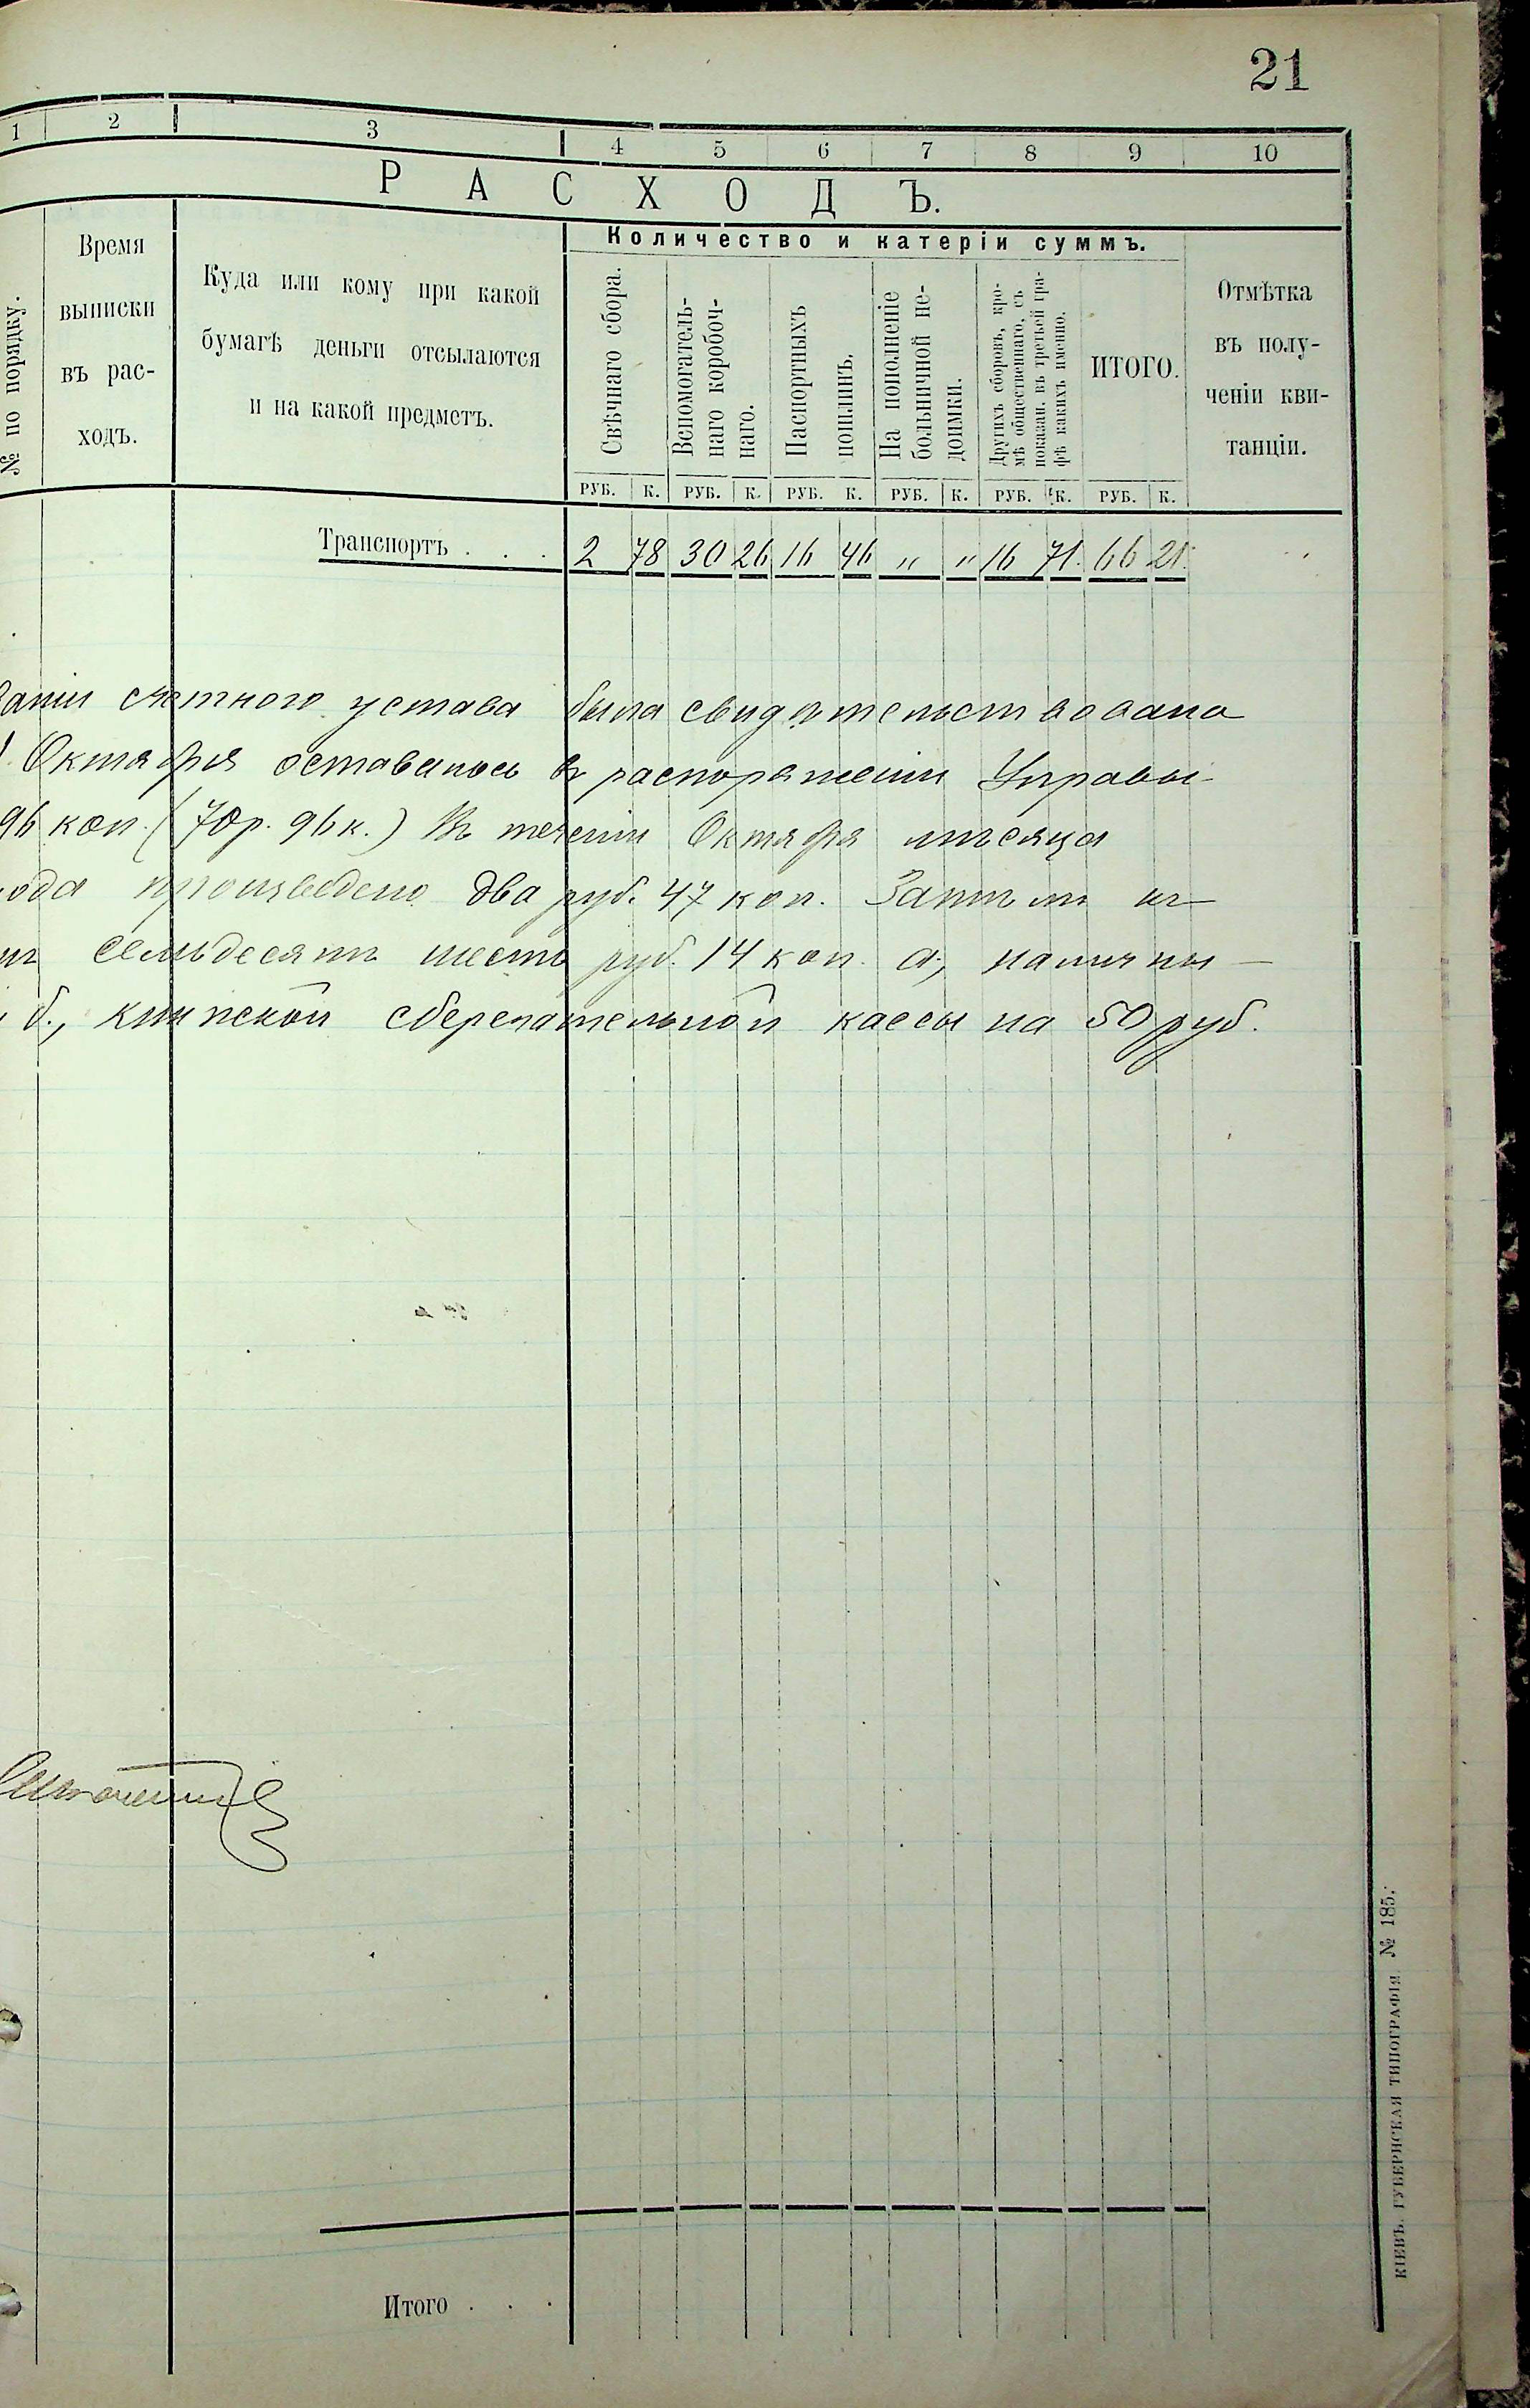 21
1 2 3 4 5 6 7 8 9 10
РАСХОДЪ.
№ по порядку.
Время
выписки
въ рас-
ходъ.
Куда или кому при какой
бумагѣ деньги отсылаются
и на какой предметъ.
Количество и катеріи суммъ.
Свѣчнаго сбора.
Вспомогатель-
наго коробоч-
наго.
Паспортныхъ
пошлинъ.
На пополненіе
больничной не-
доимки.
Другихъ сборовъ, кро-
мѣ общественнаго, съ
показан. въ третьей гра-
фѣ какихъ именно.
ИТОГО.
Отмѣтка
въ полу-
ченіи кви-
танціи.
РУБ. К. РУБ. К. РУБ. К. РУБ. К. РУБ. К. РУБ. К.
Транспортъ . . . 2 78 30 26 16 46 „ „ 16 71. 66 21.
счетнаго устава была свидѣтельствована
Октября оставалось въ распоряженіи Управы
96 коп. (70р. 96 к.) Въ теченіи Октября мѣсяца
ода произведено два руб. 47 коп. Затѣмъ
семьдесятъ шесть руб. 14 коп. а, наличны
б, книжкой сберегательной кассы на 50 руб.
Итого . . .
КІЕВЪ. ГУБЕРНСКАЯ ТИПОГРАФІЯ № 185.